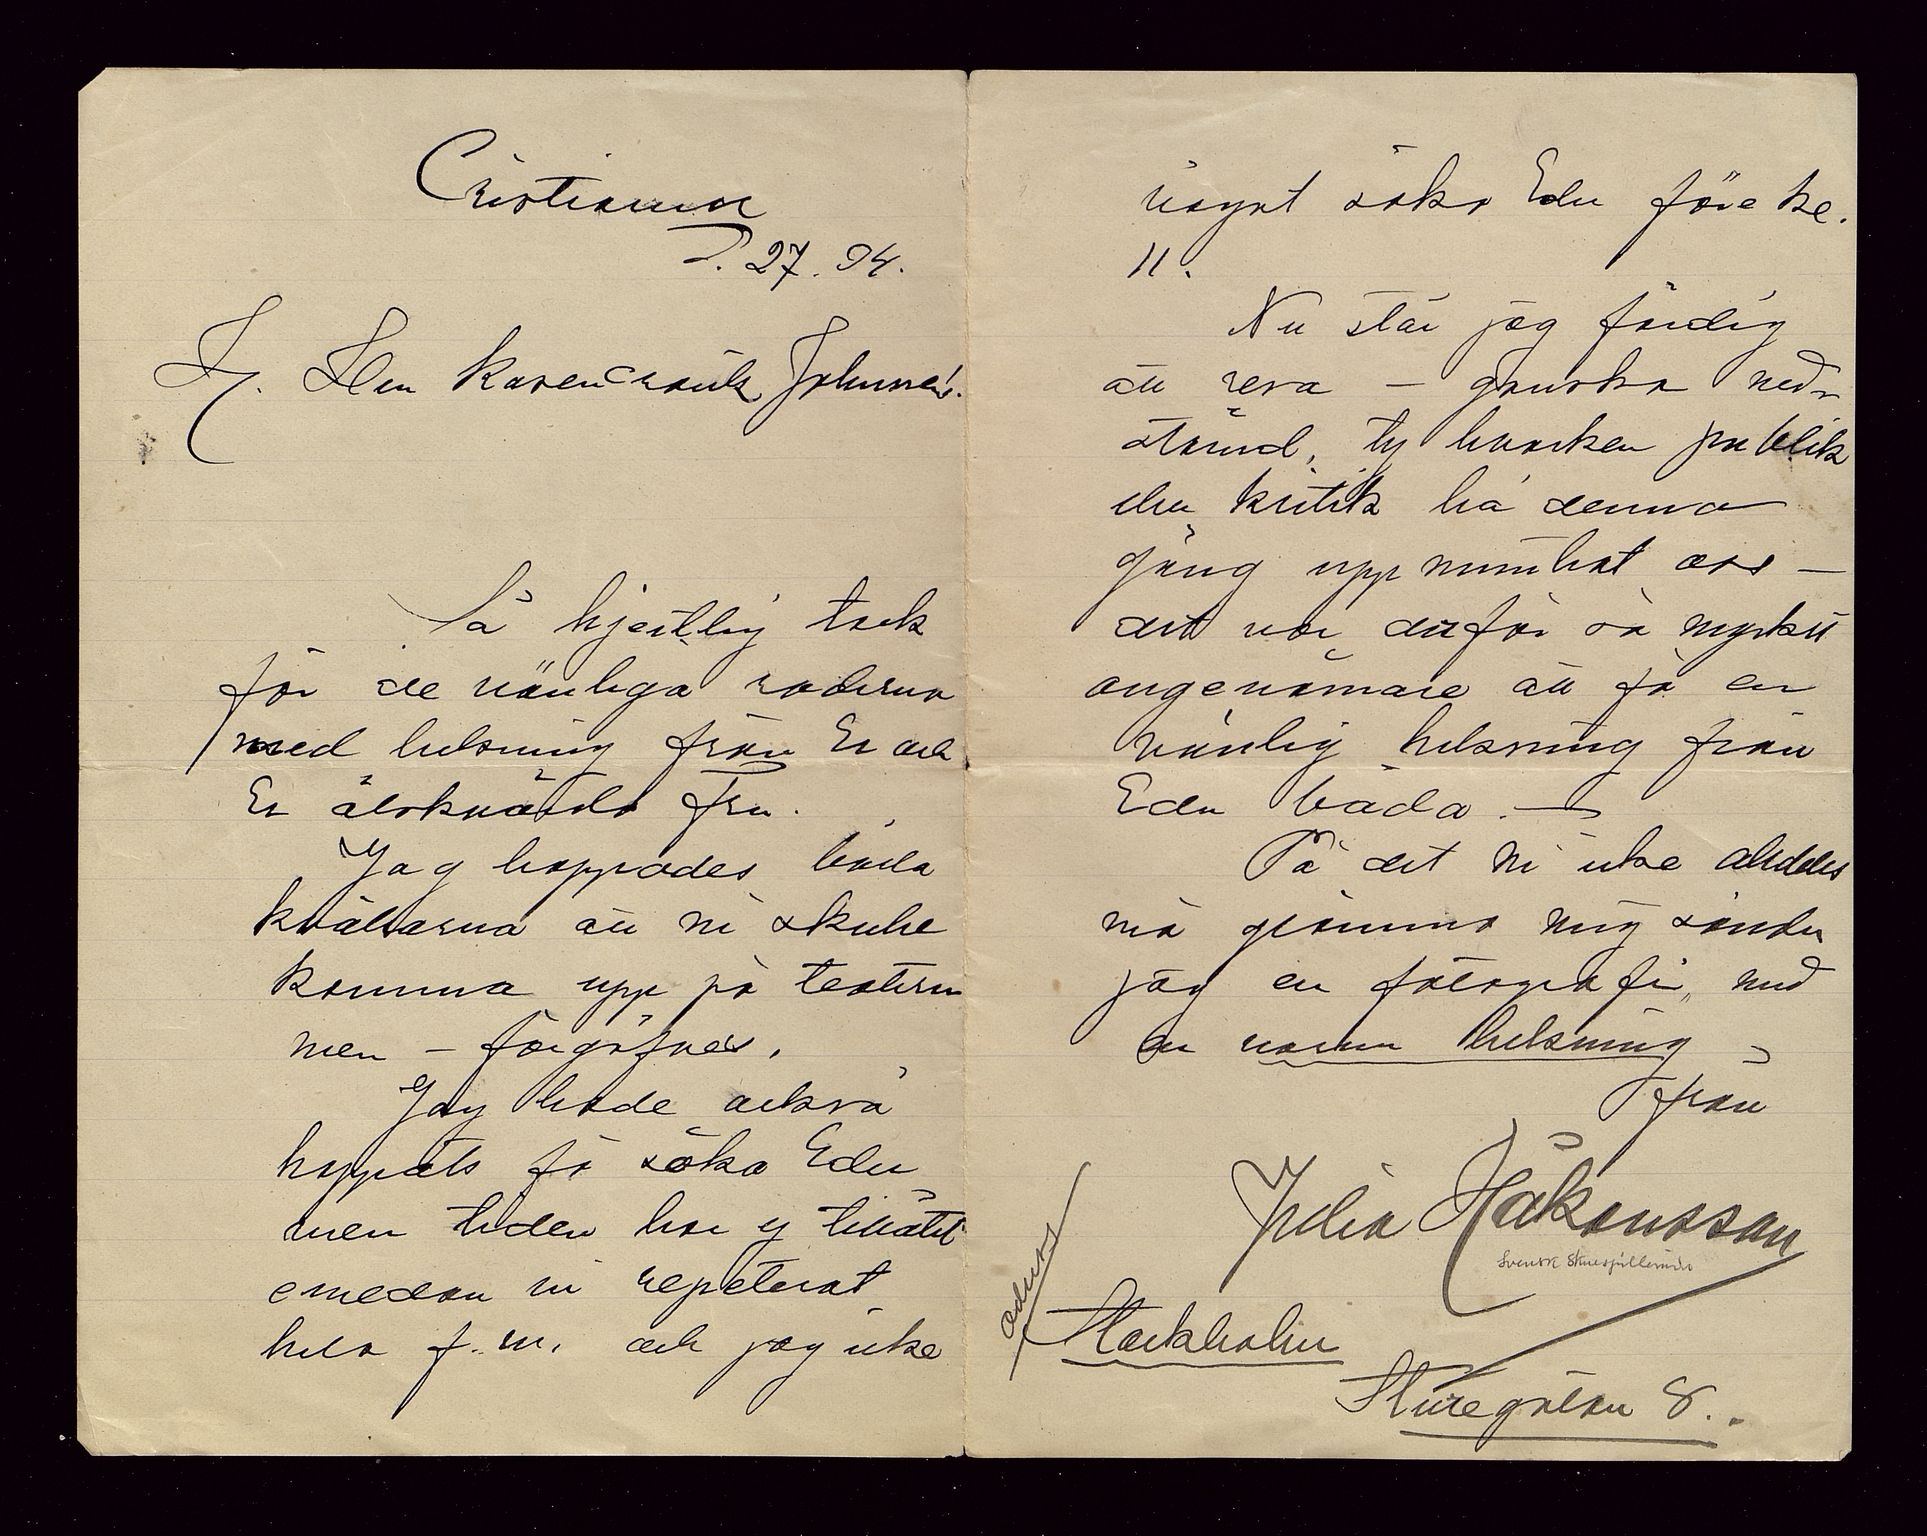 Cristiania
D. 27. 94.
Hr. Herr Johannes.
Så hjertlig tack
för de vänliga raderna
med helsning från Er och
Er älskvärda fru.
Jag hoppades båda
kvällarna att ni skulle
komma upp på teatern
men – förgäfves.
Jag hade också
hoppats få söka Eder
men tiden har ej tillåtit
emedan vi repeterat
hela f.m. och jag icke
vågat söka Eder före kl.
11.
Nu står jag färdig
att resa – ganska ned-
stämd, ty hvarken publik
eller kritik ha denna
gång uppmuntrat oss –
det var därför så mycket
angenämare att få en
vänlig helsning från
Eder båda. –
På det Ni icke alldeles
må glömma mig sänder
jag en fotografi, med
en varm helsning
från
Julia Håkansson
Svensk Skuespillerinde
adress
Stockholm
Sturegatan 8.